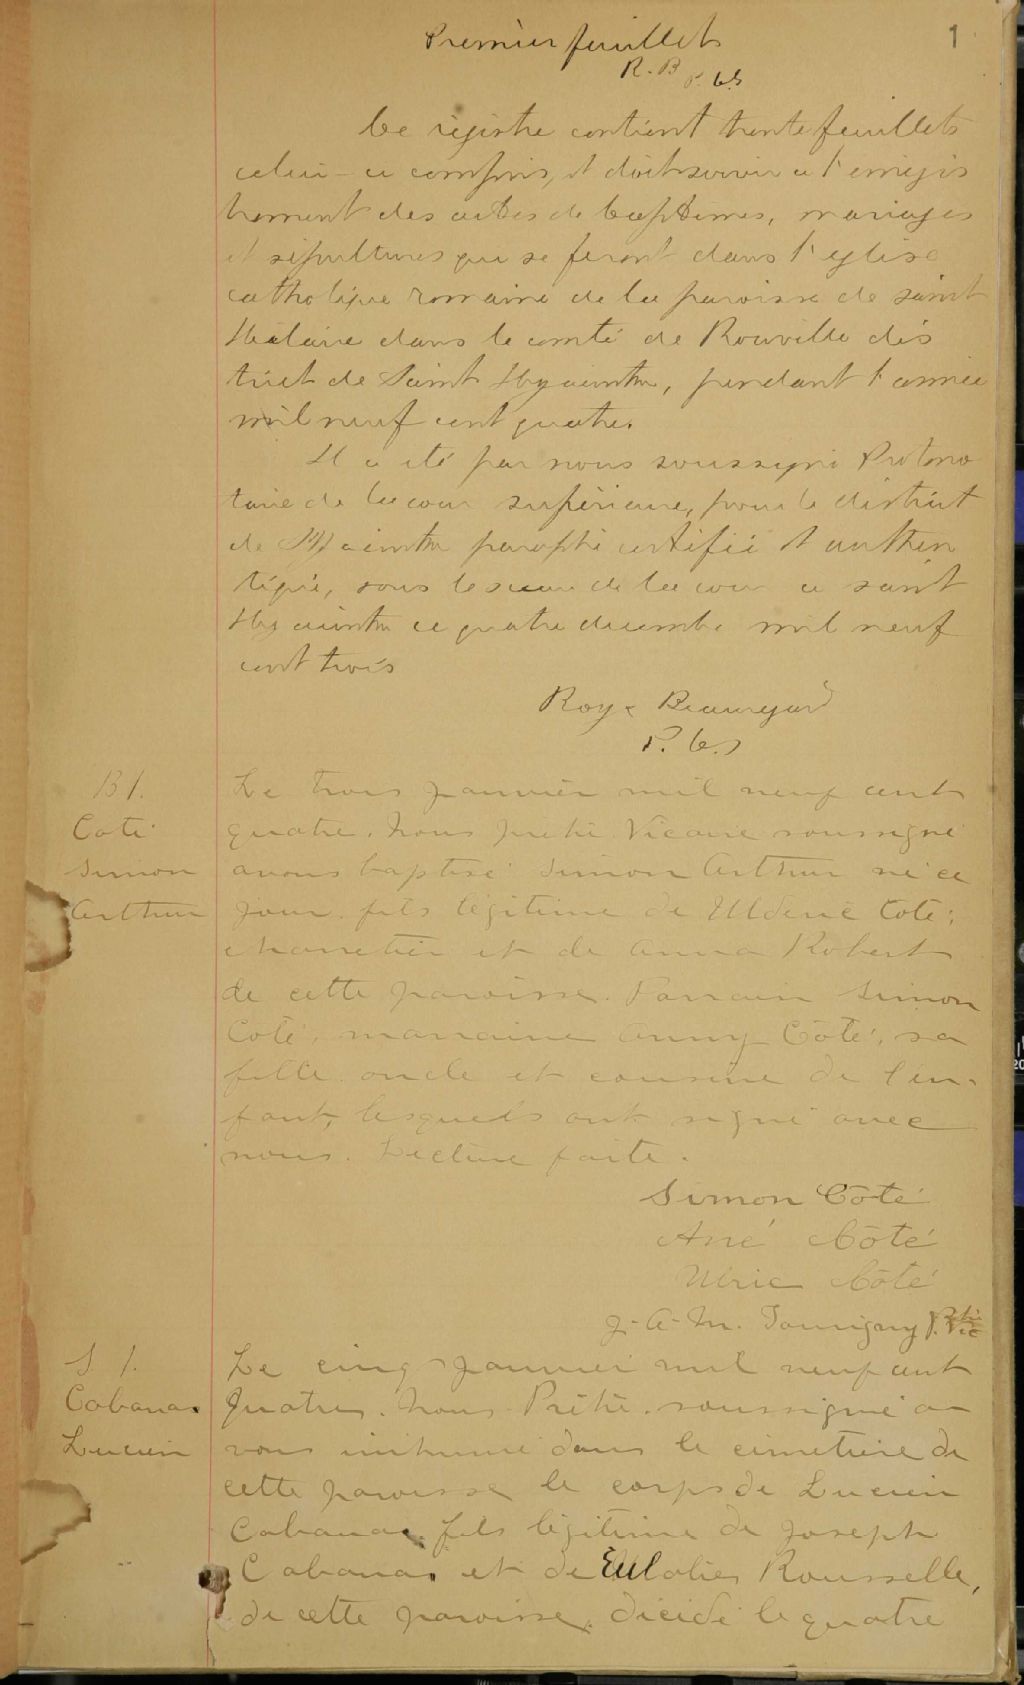 Premier feuillet
1
R. B P. C. S
Ce registre contient trente feuillets
celui-ci compris, et doit servir a l'enregis
trement des actes de baptêmes, mariages
et sépultures qui se feront dans l'eglise
catholique romaine de la paroisse de saint
Hilaire dans le comté de Rouville dis
trict de Saint Hyacinthe, pendant l'année
mil neuf cent quatre.
Il a été par nous soussigné Protono
taire de la cour supérieure, pour le district
de Hyacinthe paraphé certifié et authen
tiqué, sous le sceau de la cour a saint
Hyacinthe ce quatre decembre mil neuf
cent trois
Roy & Beauregard
P. C. S
B 1.
Coté
Simon
Arthur
Le trois janvier mil neuf cent
quatre. Nous prêtre Vicaire soussigné
avons baptisé Simon Arthur né ce
jour fils légitime de Ulderic Coté,
charretier et de Anna Robert
de cette paroisse. Parrain Simon
Coté, marraine Anny Côté, sa
fille oncle et cousine de l'en-
fant, lesquels ont signé avec
nous. Lecture faite.
Simon Côté
Ané Côté
Ulric Côté
J. A. M. Tourigny Ptre Vic
S 1.
Cabanas
Lucien
Le cinq janvier mil neuf cent
quatre. Nous Prêtre soussigné a
vons inhumé dans le cimetière de
cette paroisse le corps de Lucien
Cabanas fils légitime de Joseph
Cabanas et de Eulalie Rousselle,
de cette paroisse, décédé le quatre